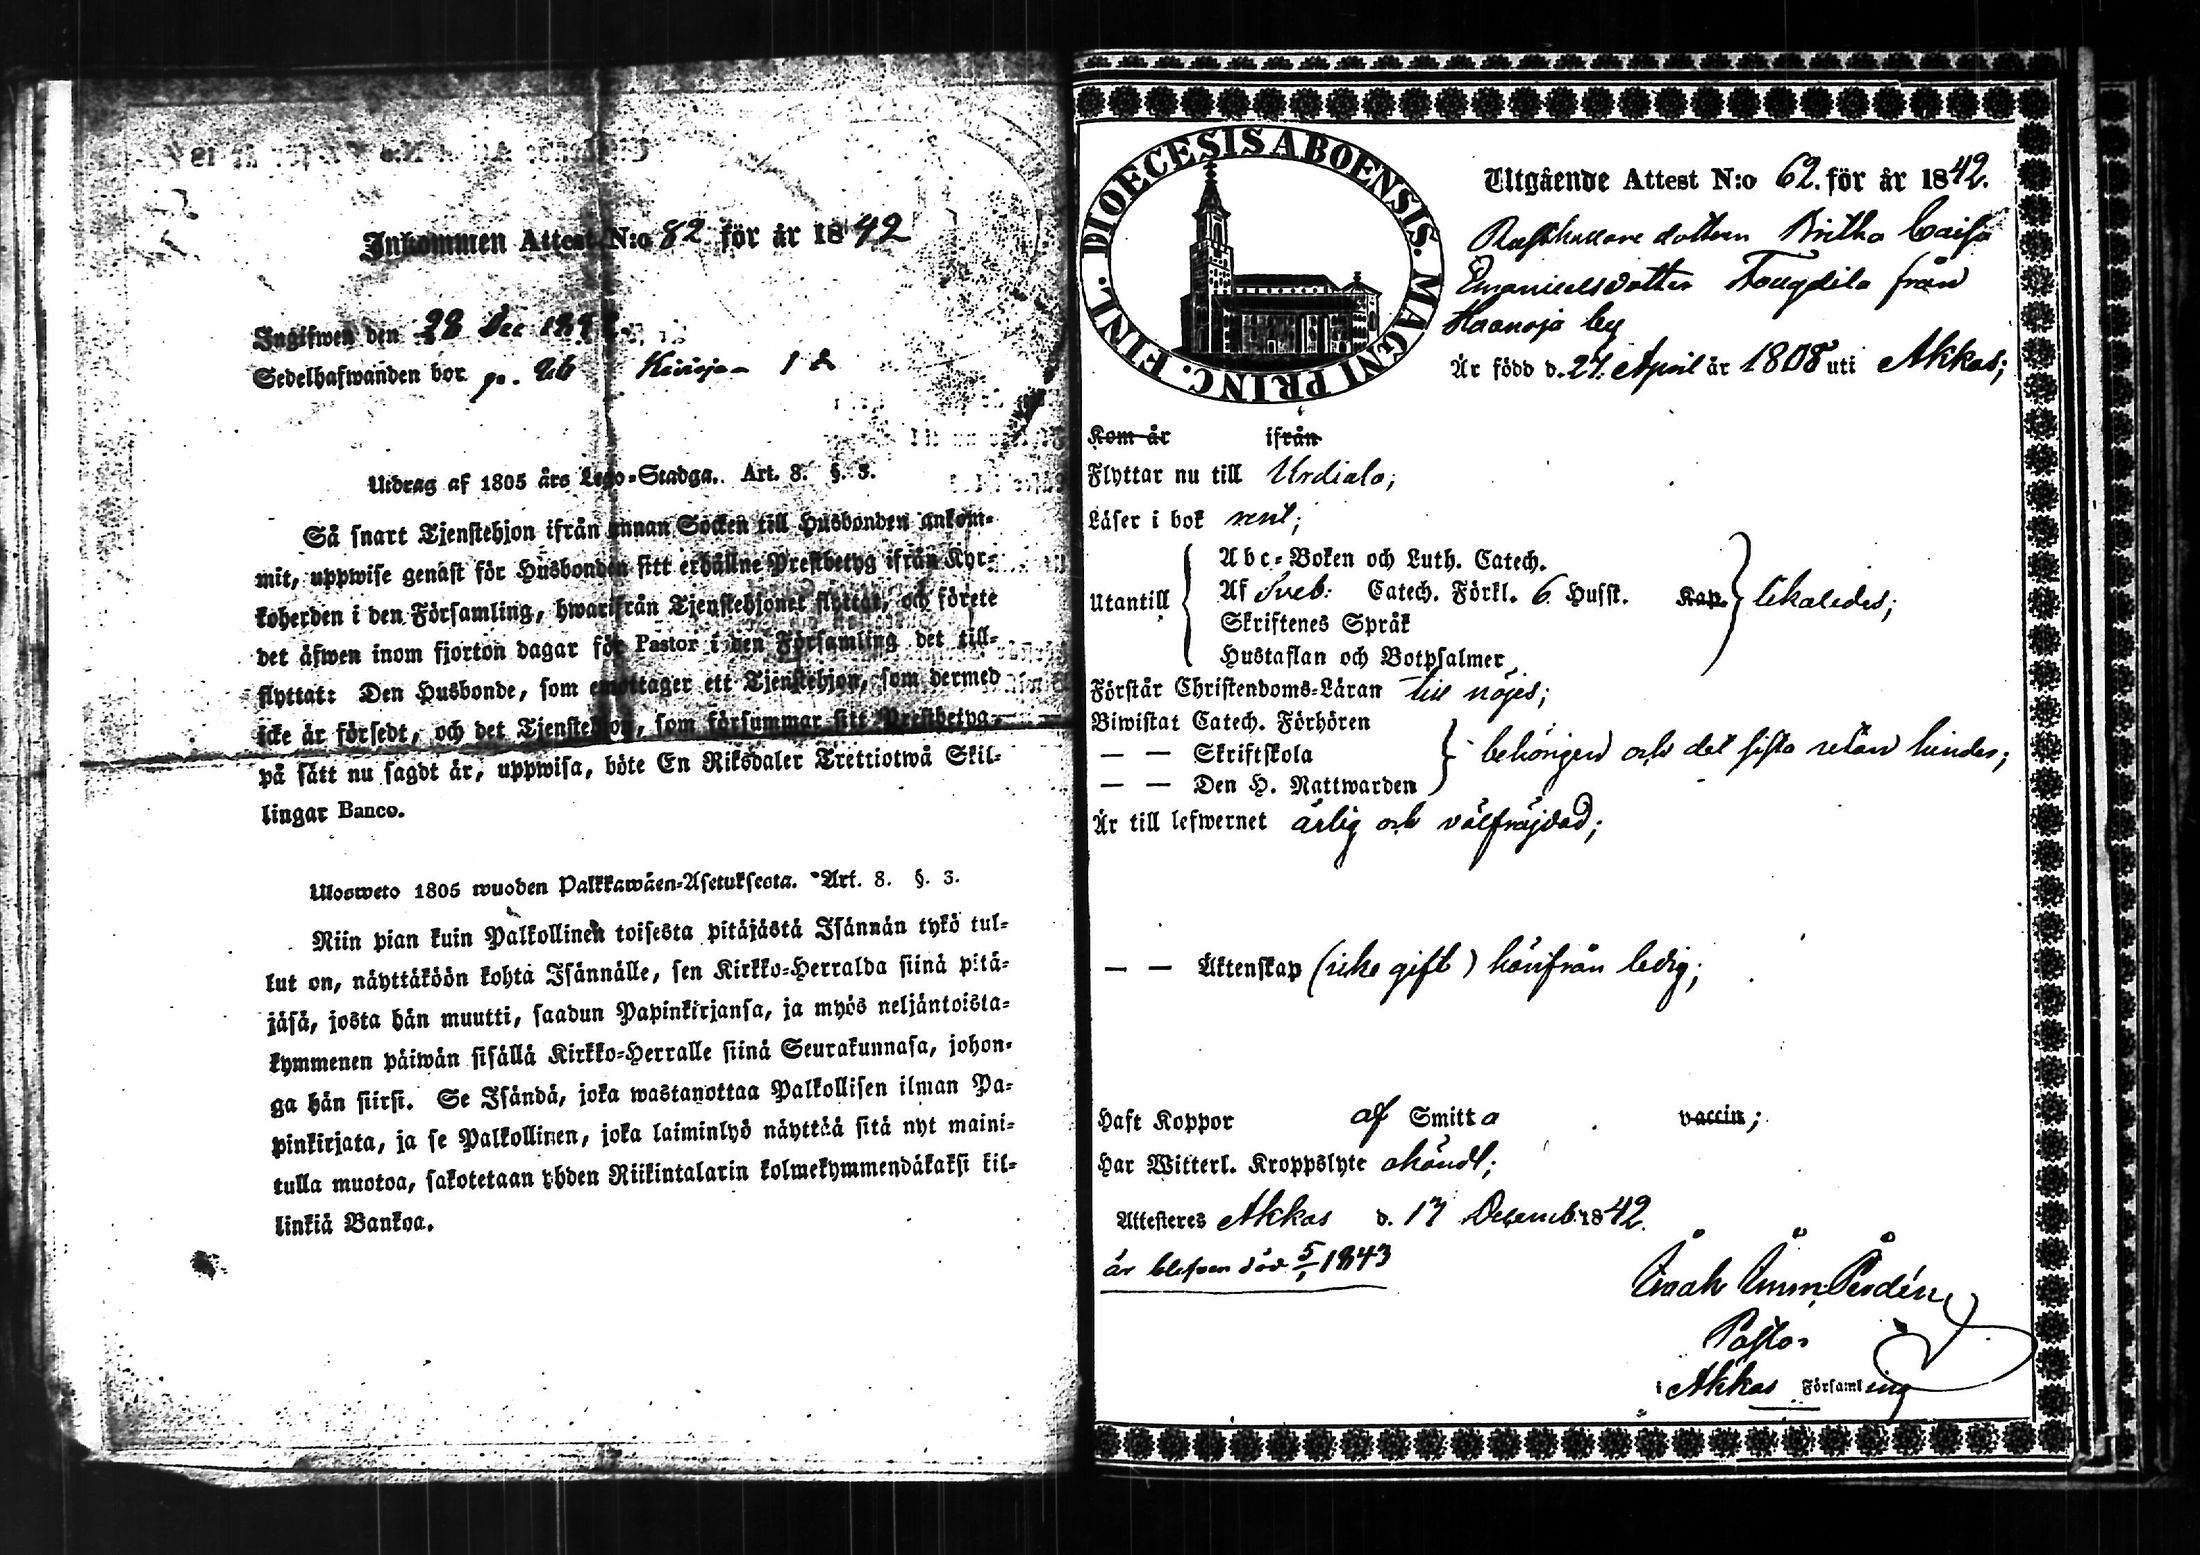 Inkommen Attest N:o 82 för år 1842
Ingifwen den 28 Dec 1842
Sedelhafwanden bor p. 26
Utdrag af 1805 års Lego-Stadga. Art. 8. §. 3.
Så snart Tjenstehjon ifrån annan Socken till Husbonden ankom-
mit, uppwise genast för Husbonden sitt erhållne Prestbetyg ifrån Kyr-
koherden i den Församling, hwarifrån Tjenstehjonet flyttat, och förete
det äfwen inom fjorton dagar för Pastor i den Församling det till-
flyttat: Den Husbonde, som emottager ett Tjenstehjon, som dermed
icke är försedt, och det Tjenstehjon, som försummar sitt Prestbetyg,
på sätt nu sagdt är, uppwisa, böte En Riksdaler Trettiotwå Skil-
lingar Banco.
Ulosweto 1805 wuoden Palkkawäen-Asetuksesta. Art. 8. §. 3.
Niin pian kuin Palkollinen toisesta pitäjästä Isännän tykö tul-
lut on, näyttäköön kohta Isännälle, sen Kirkko-Herralda siinä pitä-
jäsä, josta hän muutti, saadun Papinkirjansa, ja myös neljäntoista-
kymmenen päiwän sisällä Kirkko-Herralle siinä Seurakunnasa, johon-
ga hän siirsi. Se Isändä, joka wastanottaa Palkollisen ilman Pa-
pinkirjata, ja se Palkollinen, joka laiminlyö näyttää sitä nyt maini-
tulla muotoa, sakotetaan yhden Riikintalarin kolmekymmendäkaksi kil-
linkiä Bankoa.
DIOECESIS ABOENSIS. MAGNI PRINC. FINL.
Utgående Attest N:o 62. för år 1842.
dottern Britha Caisa
Emanuelsdotter från
Haanoja by
Är född d. 27. April år 1808 uti Akkas;
Kom år ifrån
Flyttar nu till Urdiala;
Läser i bok rent;
Utantill
Abc-Boken och Luth. Catech.
Af Sveb: Catech. Förkl. 6 Hufst. Kap.
likaledes;
Skriftenes Språk
Hustaflan och Botpsalmer
Förstår Christendoms-Läran till nöjes;
Biwistat Catech. Förhören
— — Skriftskola
behörigen och det sista redan hindes;
— — Den H. Nattwarden
Är till lefwernet ärlig och välfräjdad;
— — Äktenskap (icke gift) härifrån ledig;
Haft Koppor af Smitta vaccin;
Har Witterl. Kroppslyte okändt;
Attesteres Akkas d. 17 Decemb. 1842.
är blefven död 5/1 1843
Pastor
i Akkas Församling